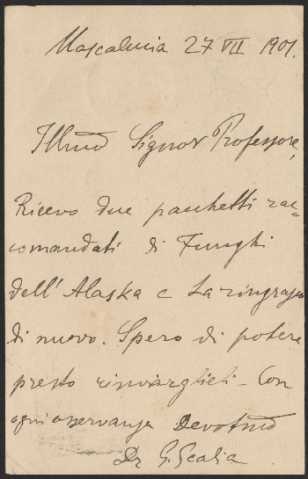 Mascalucia 27 VII 1901.
Illmo Signor Professore,
Ricevo due pacchetti rac-
comandati di Funghi
dell'Alaska e La ringrazio
di nuovo. Spero di potere
presto rinviarglieli - Con
ogni osservanza Devotmo
Dr G. Scalia